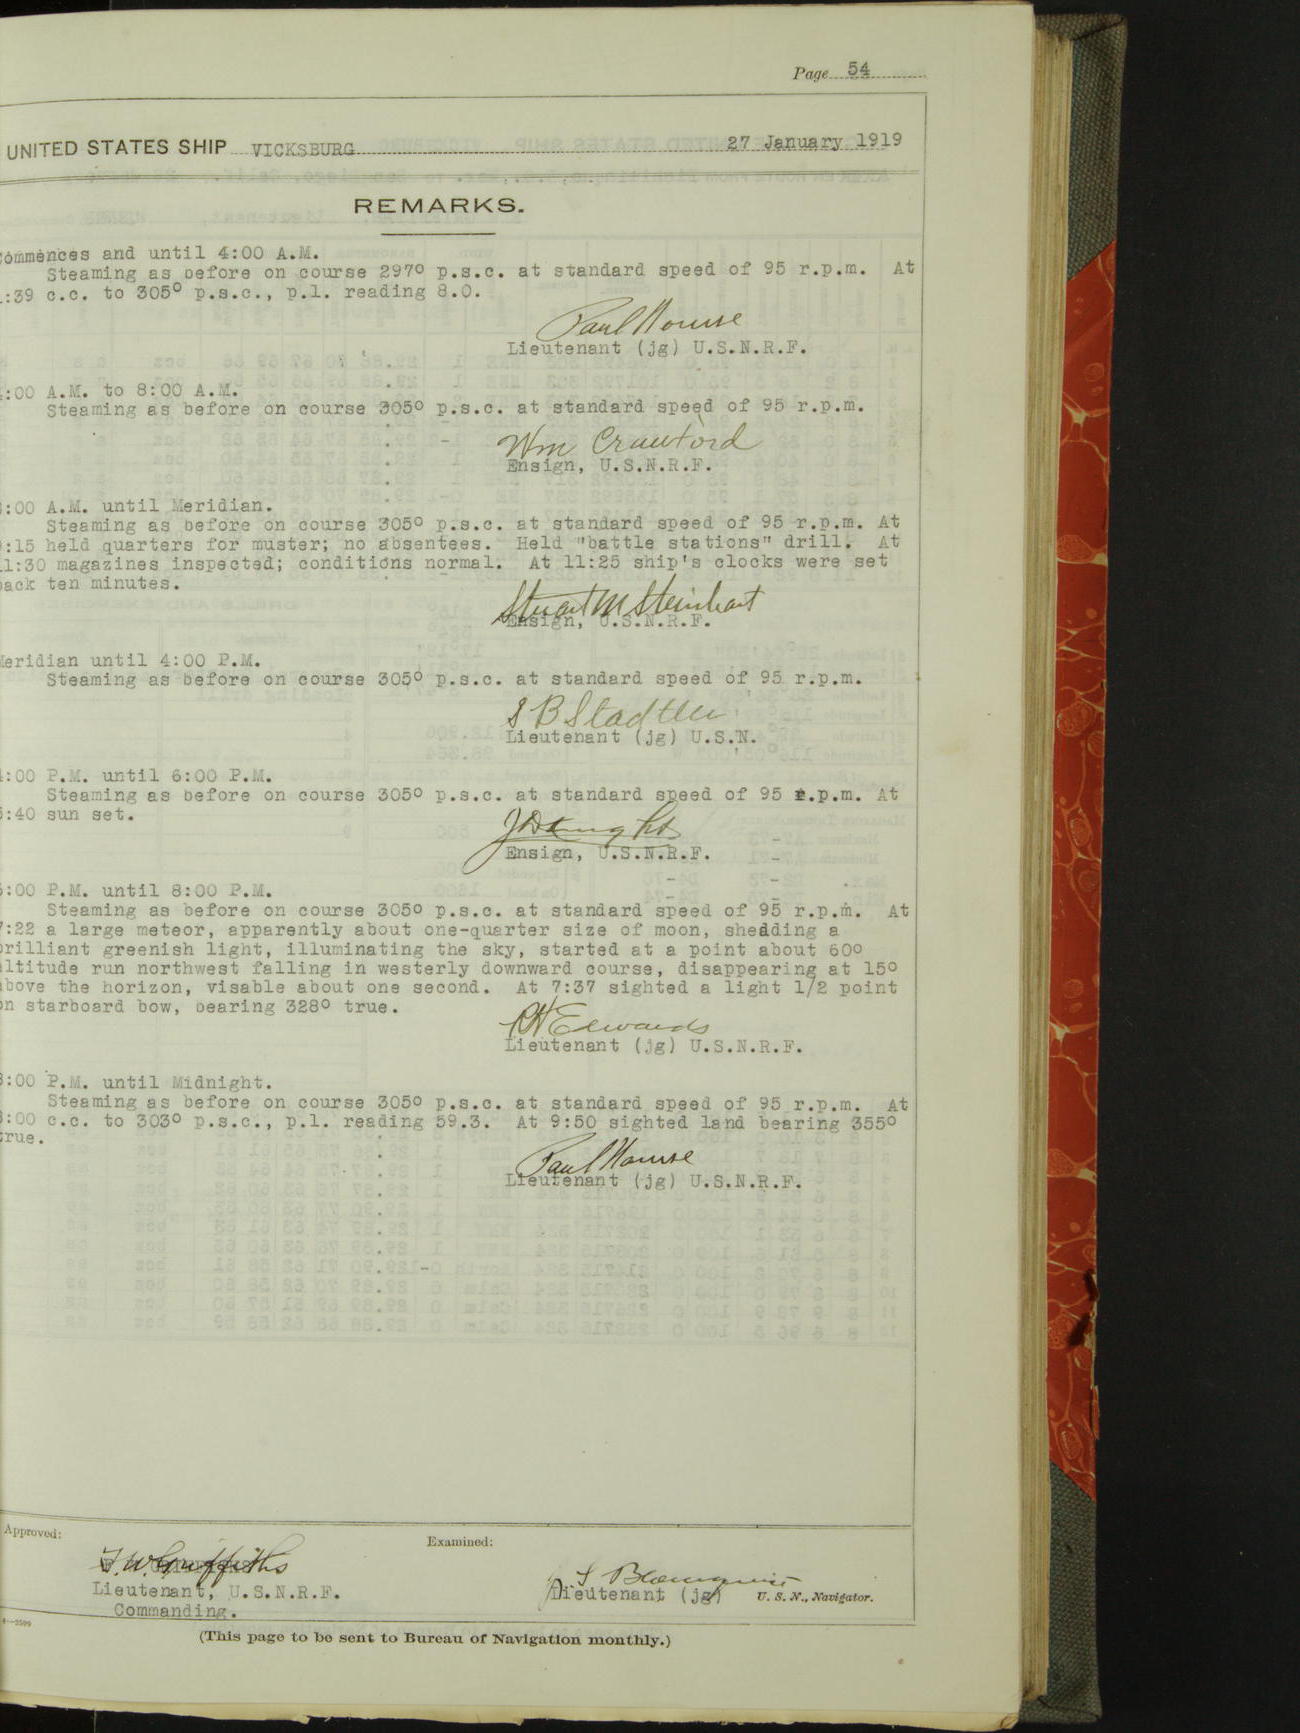 Page 54
UNITED STATES SHIP VICKSBURG 27 January 1919
REMARKS.
ommences and until 4:00 A.M.
Steaming as before on course 297° p.s.c. at standard speed of 95 r.p.m. At
:39 c.c. to 305° p.s.c., p.l. reading 8.0.
Paul
Lieutenant (jg) U.S.N.R.F.
:00 A.M. to 8:00 A.M.
Steaming as before on course 305° p.s.c. at standard speed of 95 r.p.m.
Wm Crawford
Ensign, U.S.N.R.F.
:00 A.M. until Meridian.
Steaming as before on course 305° p.s.c. at standard speed of 95 r.p.m. At
:15 held quarters for muster; no absentees. Held "battle stations" drill. At
11:30 magazines inspected; conditions normal. At 11:25 ship's clocks were set
back ten minutes.
Stuart M Steinhart
Ensign, U.S.N.R.F.
Meridian until 4:00 P.M.
Steaming as before on course 305° p.s.c. at standard speed of 95 r.p.m.
S B Stadtler
Lieutenant (jg) U.S.N.
:00 P.M. until 6:00 P.M.
Steaming as before on course 305° p.s.c. at standard speed of 95 r.p.m. At
5:40 sun set.
Ensign, U.S.N.R.F.
6:00 P.M. until 8:00 P.M.
Steaming as before on course 305° p.s.c. at standard speed of 95 r.p.m. At
7:22 a large meteor, apparently about one-quarter size of moon, shedding a
brilliant greenish light, illuminating the sky, started at a point about 60°
altitude run northwest falling in westerly downward course, disappearing at 15°
above the horizon, visable about one second. At 7:37 sighted a light 1/2 point
on starboard bow, bearing 328° true.
RH Edwards
Lieutenant (jg) U.S.N.R.F.
8:00 P.M. until Midnight.
Steaming as before on course 305° p.s.c. at standard speed of 95 r.p.m. At
8:00 c.c. to 303° p.s.c., p.l. reading 59.3. At 9:50 sighted land bearing 355°
true.
Paul
Lieutenant (jg) U.S.N.R.F.
Approved:
Examined:
Griffiths
Lieutenant, U.S.N.R.F.
Lieutenant (jg) U. S. N., Navigator.
Commanding.
(This page to be sent to Bureau of Navigation monthly.)